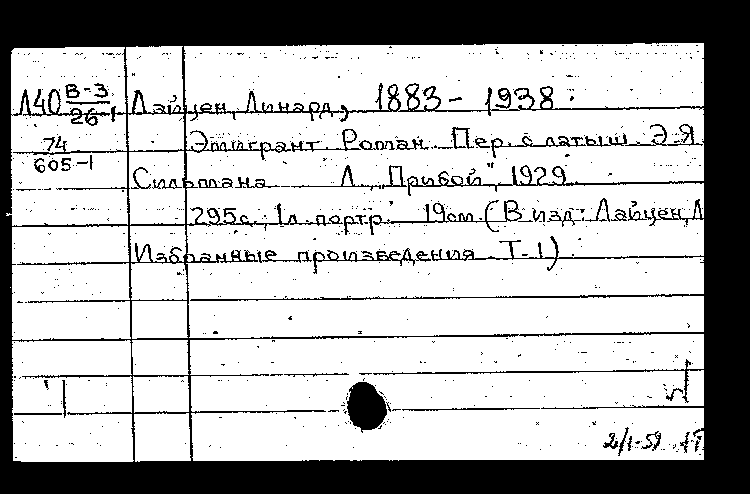 Л40 В-3/26-1 Лайцен, Линард, 1883 - 1938.
74/605-1 Эмигрант Роман. Пер. с латыш. Э.Я.
Сильмана Л. "Прибой", 1929
295с.; 1л. портр. 19см (В изд: Лайцен, Л
Избранные произведения Т-1)
2/1-59